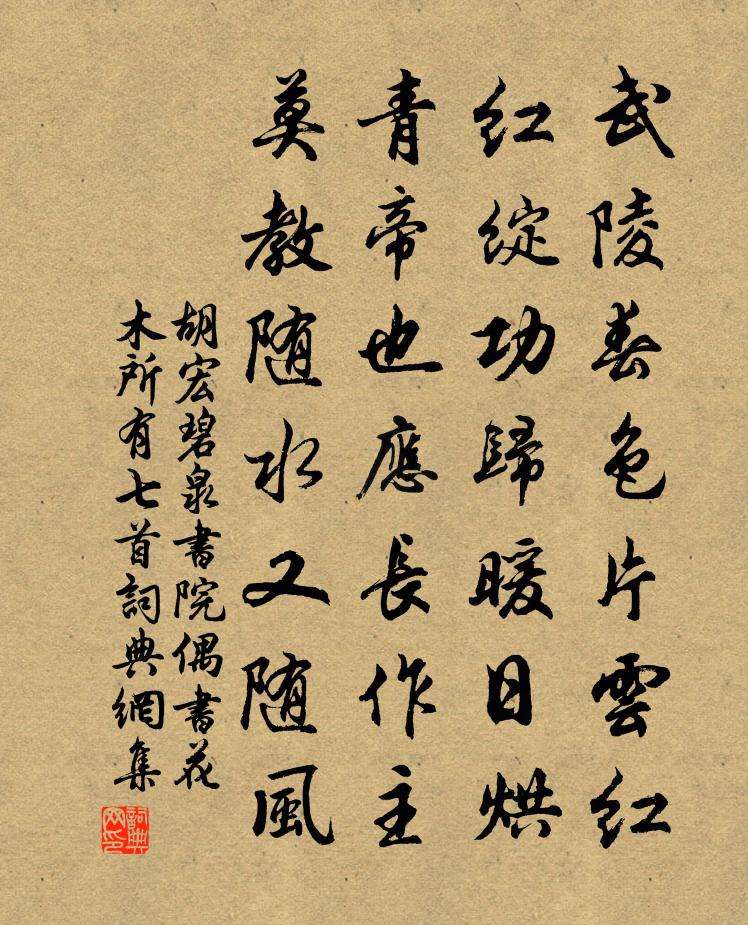 武陵春色片雲紅
紅綻功歸暖日烘
青帝也應長作主
莫教随水又随風
胡宏碧泉書院偶書花
木所有七首詞典網集
詞典
网印